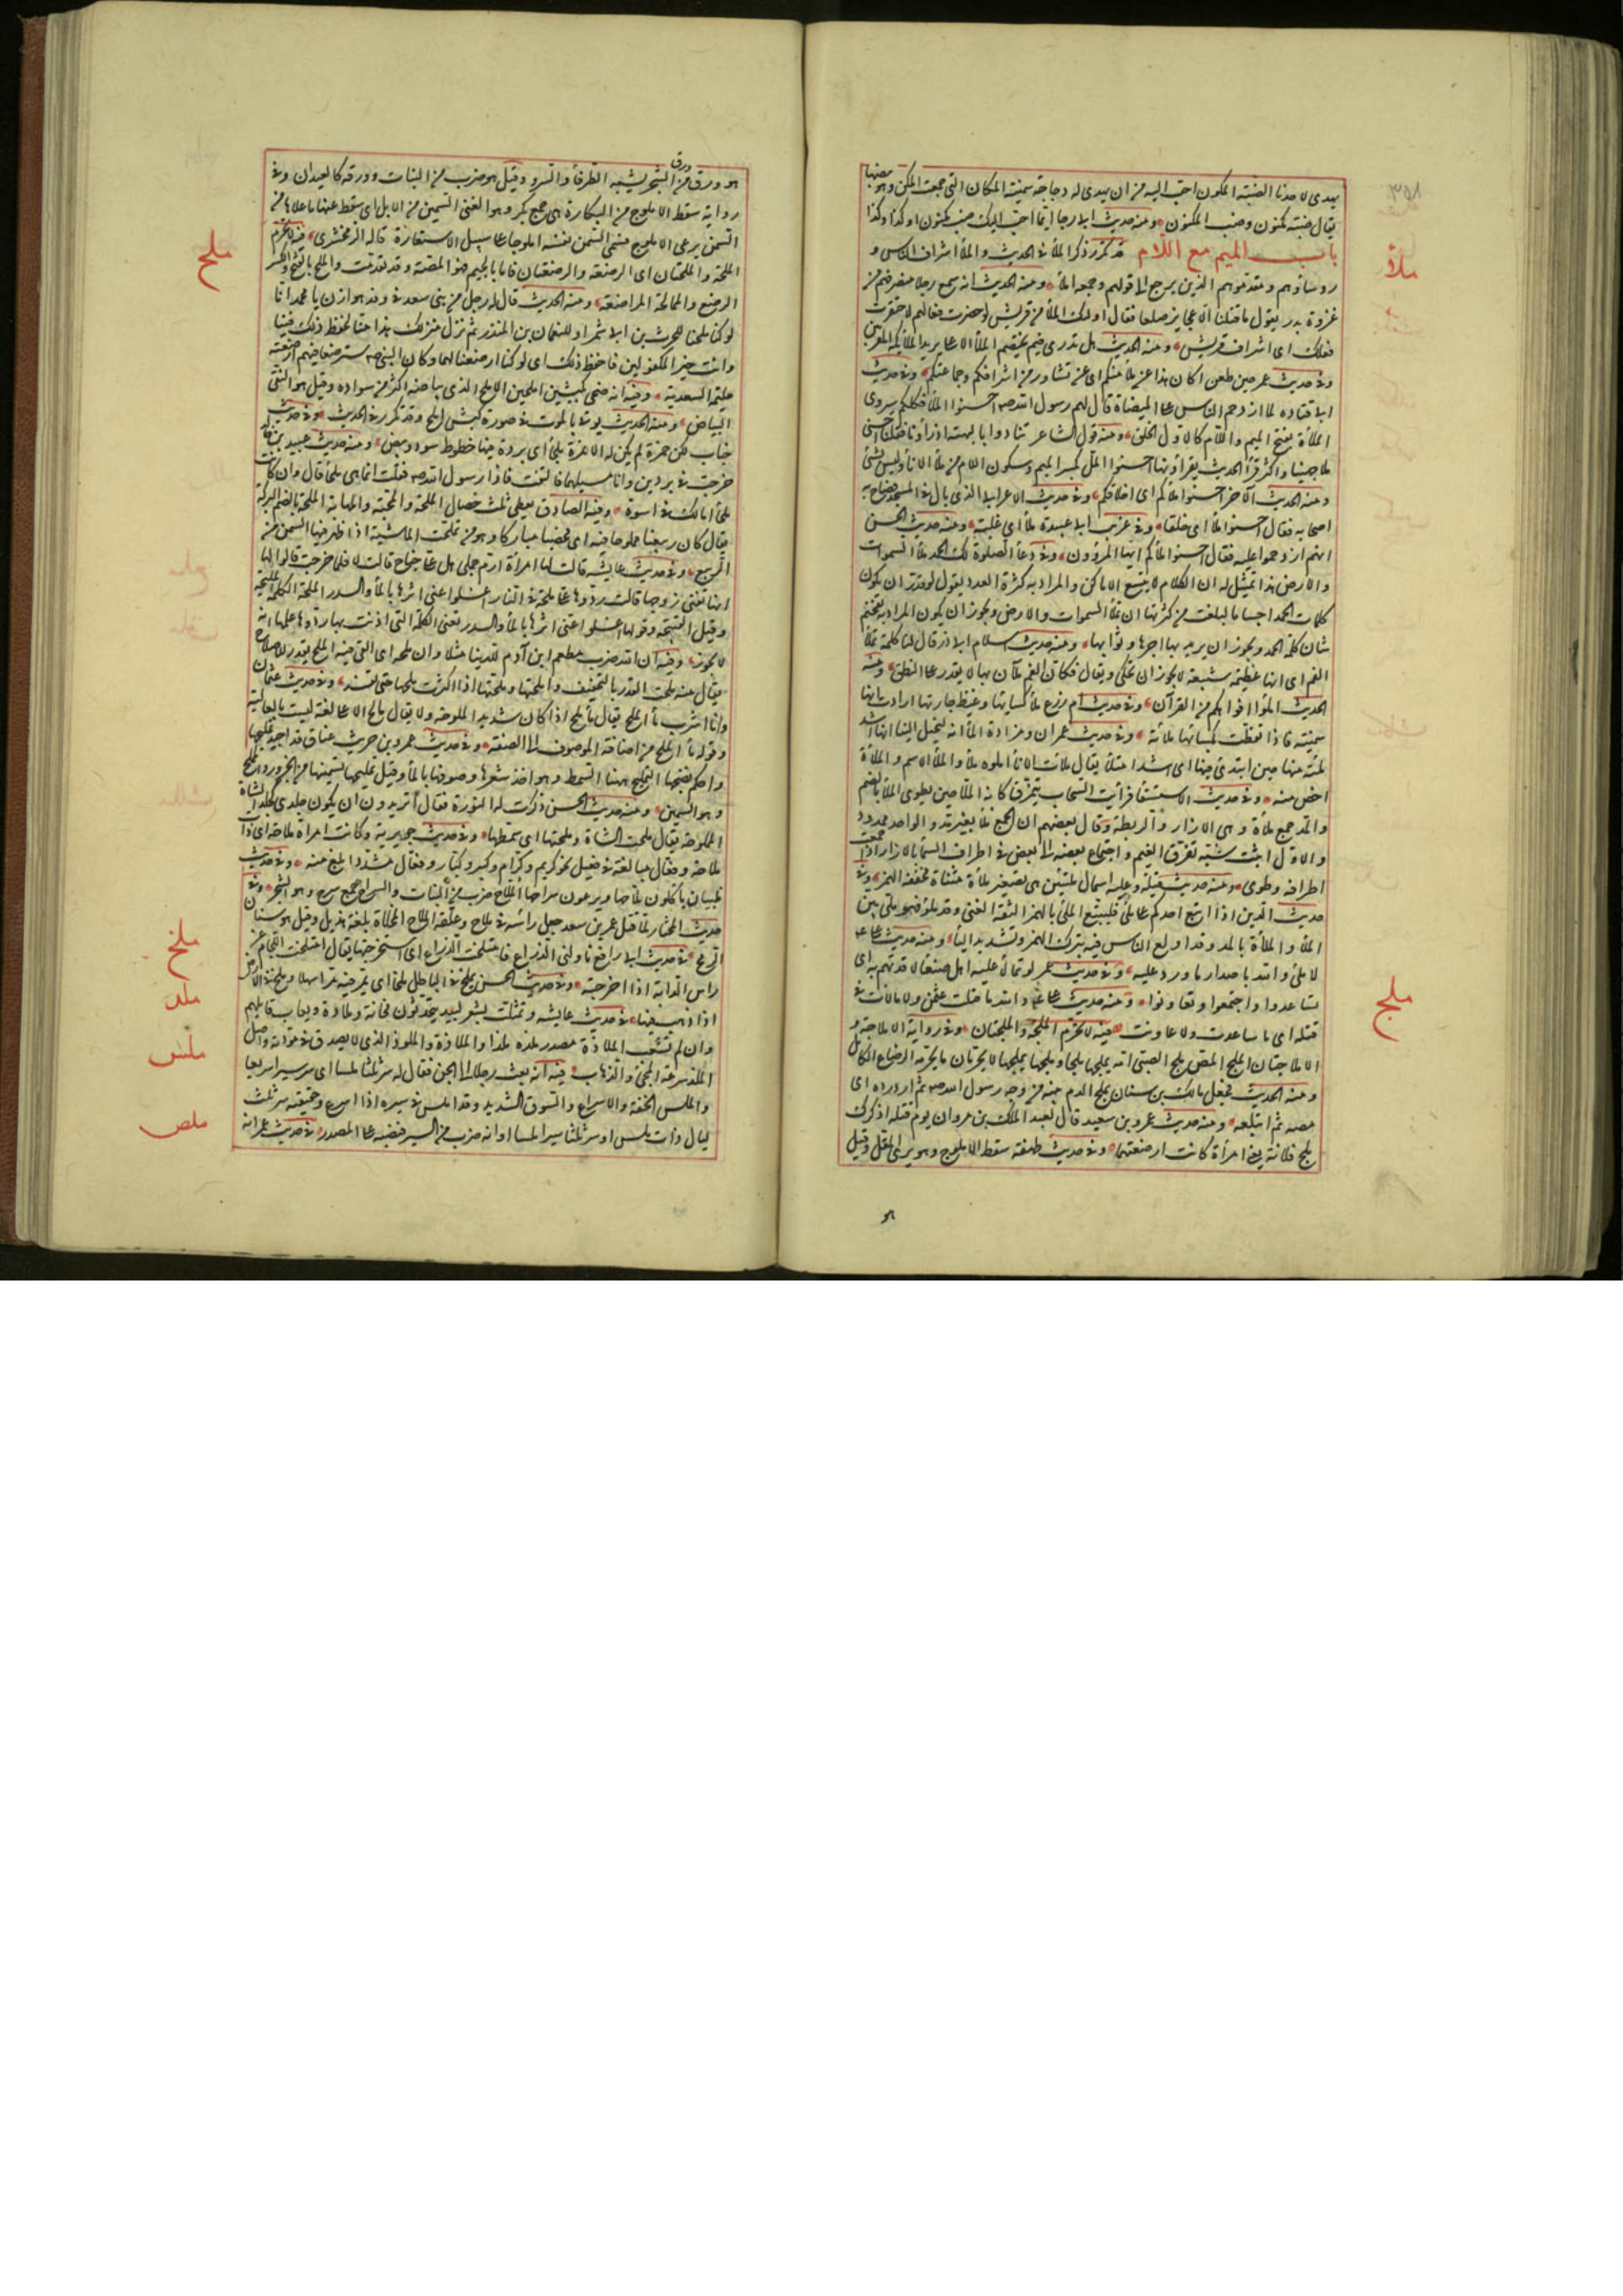 يهدى لاحدنا الضبة المكون احب اليه من ان يهدى له دجاجة سمينة المكان التى جمعت المكن وهو بيضها
يقال ضبة مكون وضب المكون ومنه حديث ابى رجا ايما احب اليك ضب مكون او كذا وكذا
باب الميم مع اللام قد تكرر ذكر الملأ فى الحديث والملأ اشراف الناس و
ملأ
روساؤهم ومقدموهم الذين يرجع الى قولهم وجمعه املأ ومنه الحديث انه سمع رجلا منصرفهم من
غزوة بدر يقول ما قتلنا الا عجايز صلعا فقال اولئك الملأ من قريش لو حضرت فعالهم لاحتقرت
فعلك اى اشراف قريش ومنه الحديث هل تدرى فيم يختصم الملأ الاعلى يريد الملائكة المقربين
وفى حديث عمر حين طعن اكان هذا عن ملأ منكم اى عن تشاور من اشرافكم وجماعتكم وفى حديث
ابى قتاده لما ازدحم الناس على الميضاة قال لهم رسول الله صـ احسنوا الملأ فكلكم سيروى
الملأ بفتح الميم واللام كالاول الخلق ومنه قول الشاعر تنادوا يا لبهثة اذ راونا فقلنا احسنى
ملأ جهينا واكثر قرأ الحديث يقراونها احسنوا الملأ بكسر الميم وسكون اللام من ملأ الانأ وليس بشئ
ومنه الحديث الاخر احسنوا املأكم اى اخلاقكم وفى حديث الاعرابى الذى بال فى المسجد فصاح به
اصحابه فقال احسنوا ملأ اى خلقا وفى غريب ابى عبيدة ملأ اى غلبة ومنه حديث الحسن
انهم ازدحموا عليه فقال احسنوا املأكم ايها المرؤون وفى دعأ الصلوة لك الحمد ملأ السموات
والارض هذا تمثيل له ان الكلام لا يسع الاماكن والمراد به كثرة العدد يقول لو قدر ان يكون
كلمات الحمد اجساما لبلغت من كثرتها ان تملأ السموات والارض ويجوز ان يكون المراد به تفخيم
شان كلمة الحمد ويجوز ان يريد بها اجرها وثوابها ومنه حديث اسلام ابى ذر قال لنا كلمة تملأ
الفم اى انها عظيمة شنيعة لا يجوز ان تحكى ويقال فكان الفم ملآن بها لا يقدر على النطق ومنه
الحديث املؤا افواهكم من القرآن وفى حديث ام زرع ملأ كسايها وغيظ جارتها ارادت انها
سمينة فاذا تغطت بكسايها ملأته وفى حديث عمران ومزادة المأ انه ليخيل الينا انها اشد
ملئة منها حين ابتدئ فيها اى اشد امتلأ يقال ملأت الانأ املوه ملأ والملأ الاسم والملأة
اخص منه وفى حديث الاستسقا فرأيت السحاب يتمزق كانه الملأ حين يطوى الملأ بالضم
والمد جمع ملأة وهى الازار والريطة وقال بعضهم ان الجمع ملأ بغير مد والواحد ممدود
والاول اثبت شبه تفرق الغيم واجتماع بعضه الى بعض فى اطراف السمأ بالازار اذا جمعت
اطرافه وطوى ومنه حديث قيلة وعليه اسمال مليتين هى تصغير ملأة مثناة مخففة الهمز وفى
حديث الدين اذا اتبع احدكم على ملئ فليتبع الملئ بالهمز الثقة الغنى وقد ملؤ فهو ملئ بين
الملأ والملأة بالمد وقد اولع الناس فيه بترك الهمز وتشديد اليأ ومنه حديث على
لا ملئ والله باصدار ما ورد عليه وفى حديث عمر لو تمالأ عليه اهل صنعا لاقدتهم به اى
تساعدوا واجتمعوا وتعاونوا ومنه حديث على والله ما قتلت عثمن ولا مالأت فى
قتله اى ما ساعدت ولا عاونت فيه لا تحرم الملجة والملجتان وفى رواية الاملاجة و
ملج
الاملاجتان الملج المص ملج الصبى امه يملجها ملجا وملجها يملجها لا يحرمان ما يحرمه الرضاع الكامل
ومنه الحديث فجعل مالك بن سنان يملج الدم بفيه من وجه رسول الله صـ ثم ازدرده اى
مصه ثم ابتلعه ومنه حديث عمرو بن سعيد قال لعبد الملك بن مروان يوم قتله اذكرك
ملج فلانة يعنى امرأة كانت ارضعتهما وفى حديث طهفة سقط الاملوج وهو نوى المقل وقيل
هو ورق من الشجر يشبه الطرفأ والسرو وقيل هو ضرب من النبات ورقه كالعيدان وفى
ورق
رواية سقط الاملوج من البكارة هى جمع بكر وهو الفتى السمين من الابل اى سقط عنها ما علاها من
السمن برعى الاملوج فسمى السمن نفسه املوجا على سبيل الاستعارة قاله الزمخشرى فيه لا تحرم
ملح
الملحة والملحتان اى الرضعة والرضعتان فاما بالجيم فهو المصة وقد تقدمت والملح بالفتح والكسر
الرضع والممالحة المراضعة ومنه الحديث قال له رجل من بنى سعد فى وفد هوازن يا محمد انا
لو كنا ملحنا للحرث بن ابى شمر او للنعمان بن المنذر ثم نزل منزلك هذا منا لحفظ ذلك فينا
وانت خير المكفولين فاحفظ ذلك اى لو كنا ارضعنا لهما وكان النبى صـ مسترضعا فيهم ارضعته
حليمة السعدية وفيه انه ضحى بكبشين املحين الاملح الذى بياضه اكثر من سواده وقيل هو النقى
البياض ومنه الحديث يؤتى بالموت فى صورة كبش املح وقد تكرر فى الحديث وفى حديث
خباب لكن حمزة لم يكن له الا نمرة ملحأ اى بردة فيها خطوط سود وبيض ومنه حديث عبيد بن خالد
خرجت فى بردين وانا مسبلهما فالتفت فاذا رسول الله صـ فقلت انما هى ملحأ قال وان كانت
ملحأ اما لك فى اسوة وفيه الصادق يعطى ثلث خصال الملحة والمحبة والمهابة الملحة بالضم البركة
يقال كان ربيعنا مملوحا فيه اى مخصبا مباركا وهو من تملحت الماشية اذا ظهر فيها السمن من
الربيع وفى حديث عايشه قالت لها امرأة ازم جملى هل على جناح قالت لا فلما خرجت قالوا لها
انها تعنى زوجها قالت ردوها على ملحة فى النار اغسلوا عنى اثرها بالمأ والسدر الملحة الكلمة المليحة
وقيل القبيحة وقولها اغسلوا عنى اثرها بالمأ والسدر تعنى الكلمة التى اذنت بها ردوها على لاعلمها انه
لا يجوز وفيه ان الله ضرب مطعم ابن آدم للدنيا مثلا وان ملحه اى التى فيه الملح بقدر للاصلاح
يقال منه ملحت القدر بالتخفيف واملحتها وملحتها اذا اكثرت ملحها حتى تفسد وفى حديث عثمان
وانا اشرب مأ الملح يقال مأ ملح اذا كان شديد الملوحة ولا يقال مالح الا على لغة ليست بالعالية
وقوله مأ الملح من اضافة الموصوف الى الصفة وفى حديث عمرو بن حريث عناق قد اجيد تمليحها
واحكم نضجها التمليح ههنا السمط وهو اخذ شعرها وصوفها بالمأ وقيل تمليحها تسمينها من الجزور المملح
وهو السمين ومنه حديث الحسن ذكرت له النورة فقال أتريدون ان يكون جلدى كجلد الشاة
المملوحة يقال ملحت الشاة وملحتها اى سمطتها وفى حديث جويرية وكانت امراة ملاحة اى ذات
ملاحة وفعال مبالغة فى فعيل نحو كريم وكرام وكبير وكبار وفعال مشددا ابلغ منه وفى حديث
ظبيان ياكلون ملاحها ويرعون سراحها الملاح ضرب من النبات والسراح جمع سرح وهو الشجر وفى
حديث المختار لما قتل عمر بن سعد جعل راسه فى ملاح وعلقه الملاح المخلاة بلغة هذيل وقيل هو سنان
الرمح فى حديث ابى رافع ناولنى الذراع فامتلخت الذراع اى استخرجتها يقال امتلخت اللجام عن
ملخ
راس الدابة اذا اخرجته وفى حديث الحسن يملخ فى الباطل ملخا اى يمر فيه مرا سهلا وملخ فى الارض
اذا ذهب فيها فى حديث عايشه وتمثلت بشعر لبيد يتحدثون مخانة وملاذة ويعاب قايلهم
ملذ
وان لم يشغب الملاذة مصدر ملذه ملذا وملاذة والملوذ الذى لا يصدق فى مودته واصل
الملذ سرعة المجئ والذهاب فيه انه بعث رجلا الى الجن فقال له سر ثلثا ملسا اى سر سيرا سريعا
ملس
والملس الخفة والاسراع والسوق الشديد وقد املس فى سيره اذا اسرع وحقيقته سر ثلث
ليال ذات ملس او سر ثلثا سيرا ملسا او انه ضرب من السير فنصبه على المصدر فى حديث عمر انه
ملص